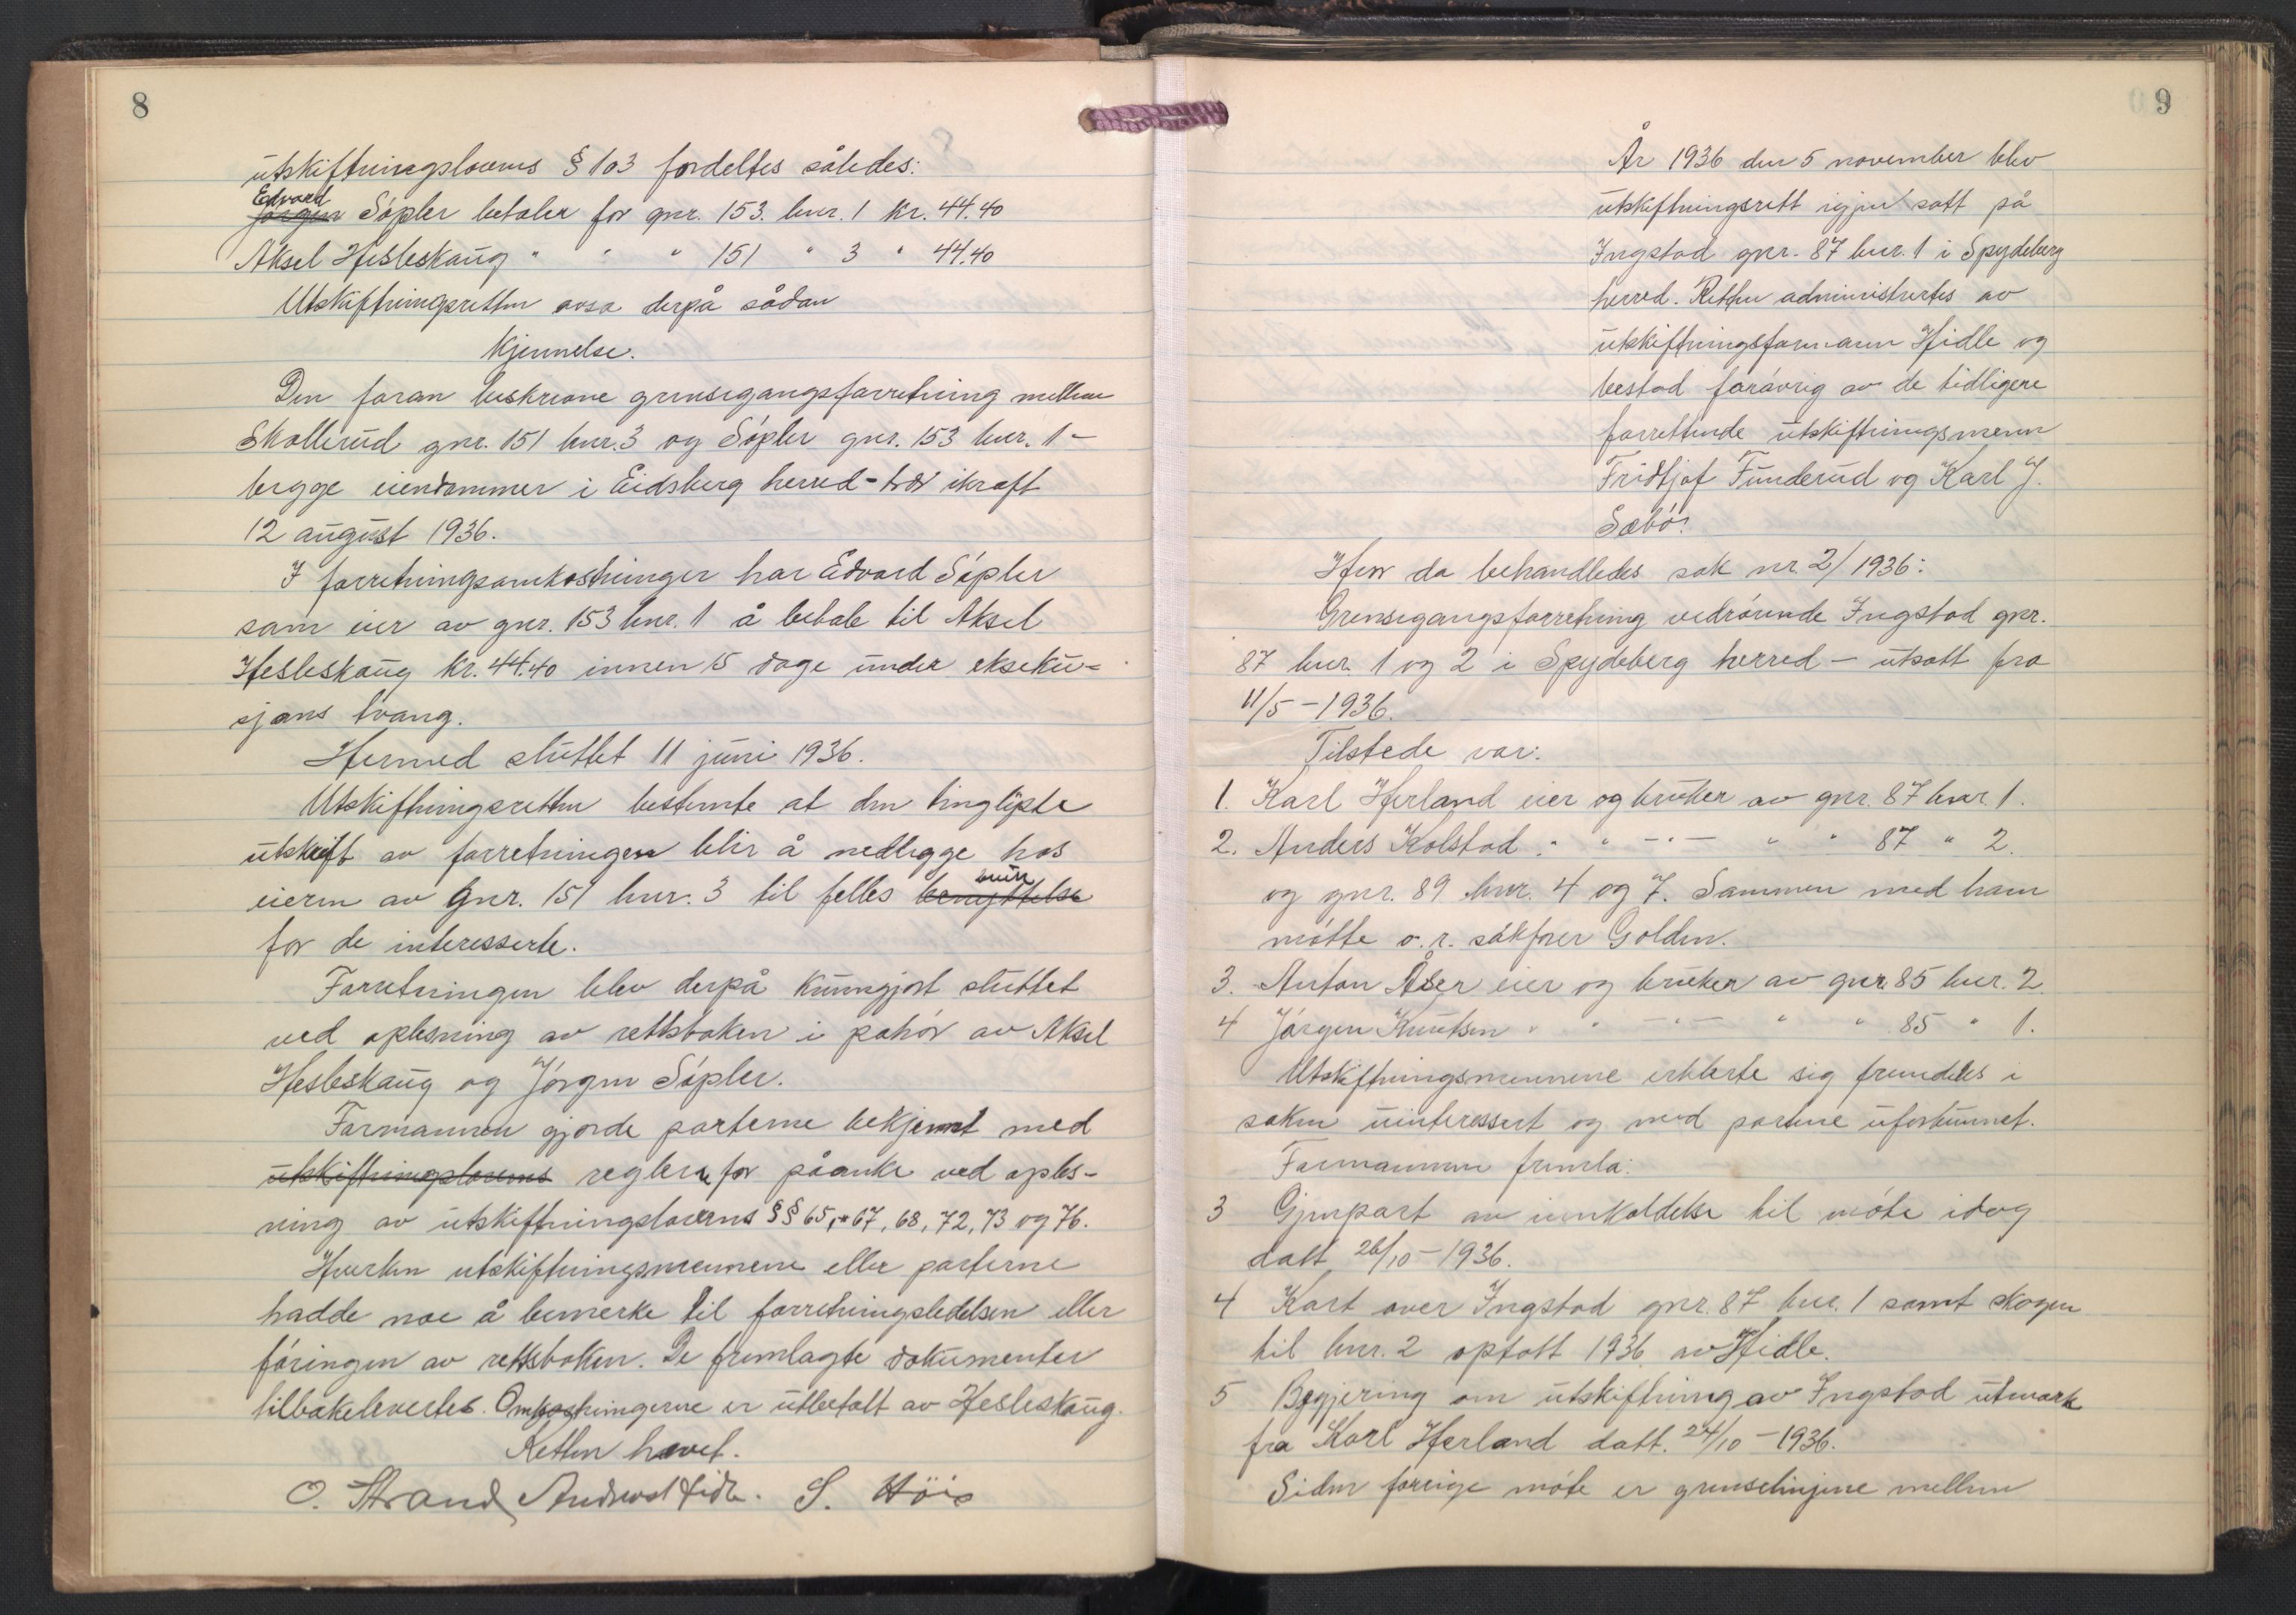 8
utskiftningslovens § 103 fordeltes således:
Edvard
Jörgen Söpler betaler for gnr. 153. bnr. 1 kr. 44.40
Aksel Hesleskaug " " " 151 " 3 " 44.40
Utskiftningsretten avsa derpå sådan
Kjennelse.
Den foran beskrevne grensegangsforretning mellem
Skollerud gnr. 151 bnr. 3 og Söpler gnr. 153 bnr. 1 -
begge eiendommer i Eidsberg herred - trær ikraft
12 august 1936.
I forretningsomkostninger har Edvard Söpler
som eier av gnr. 153 bnr. 1 å betale til Aksel
Hesleskaug kr. 44.40 innen 15 dage under ekseku-
sjons tvang.
Hermed sluttet 11 juni 1936.
Utskiftningsretten bestemte at den tinglyste
utskrift av forretningen blir å nedlegge hos
eieren av gnr. 151 bnr. 3 til felles benyttelse
for de interesserte.
Forretningen blev derpå kunngjort sluttet
ved oplesning av rettsboken i påhör av Aksel
Hesleskaug og Jörgen Söpler.
Formannen gjorde parterne bekjennt med
utskiftningslovens reglene for påanke ved oples-
ning av utskiftningslovens §§ 65, 67, 68, 72, 73 og 76.
Hverken utskiftningsmennene eller parterne
hadde noe å bemerke til forretningsledelsen eller
föringen av rettsboken. De fremlagte dokumenter
tilbakelevertes. Omkostningerne er utbetalt av Hesleskaug.
Retten hevet.
O. Strand Andreas Hidle. S. Höie
9
År 1936 den 5 november blev
utskiftningsrett igjen satt på
Ingstad gnr. 87 bnr. 1 i Spydeberg
herred. Retten administrertes av
utskiftningsformann Hidle og
bestod forövrig av de tidligere
forrettende utskiftningsmenn
Fridtjof Funderud og Karl J.
Sæbö.
Hvor da behandledes sak nr. 2/1936:
Grensegangsforretning vedrörende Ingstad gnr.
87 bnr. 1 og 2 i Spydeberg herred - utsatt fra
11/5 - 1936.
Tilstede var:
1. Karl Herland eier og bruker av gnr. 87 bnr. 1.
2. Anders Kolstad " " -"- " " 87 " 2.
og gnr. 89 bnr. 4 og 7. Sammen med ham
mötte o. r. sakförer Golden.
3. Anton Åser eier og bruker av gnr. 85 bnr. 2.
4 Jörgen Knutsen " " -"- " " 85 " 1.
Utskiftningsmennene erklærte sig fremdeles i
saken uinteressert og med partene ubeslektet.
Formannen fremla:
3 Gjenpart av innkaldelse til möte idag
datt. 26/10 - 1936.
4 Kart over Ingstad gnr. 87 bnr. 1 samt skogen
til bnr. 2 optatt 1936 av Hidle.
5 Begjering om utskiftning av Ingstad utmark
fra Karl Herland datt. 24/10 - 1936.
Siden forrige möte er grenselinjene mellem